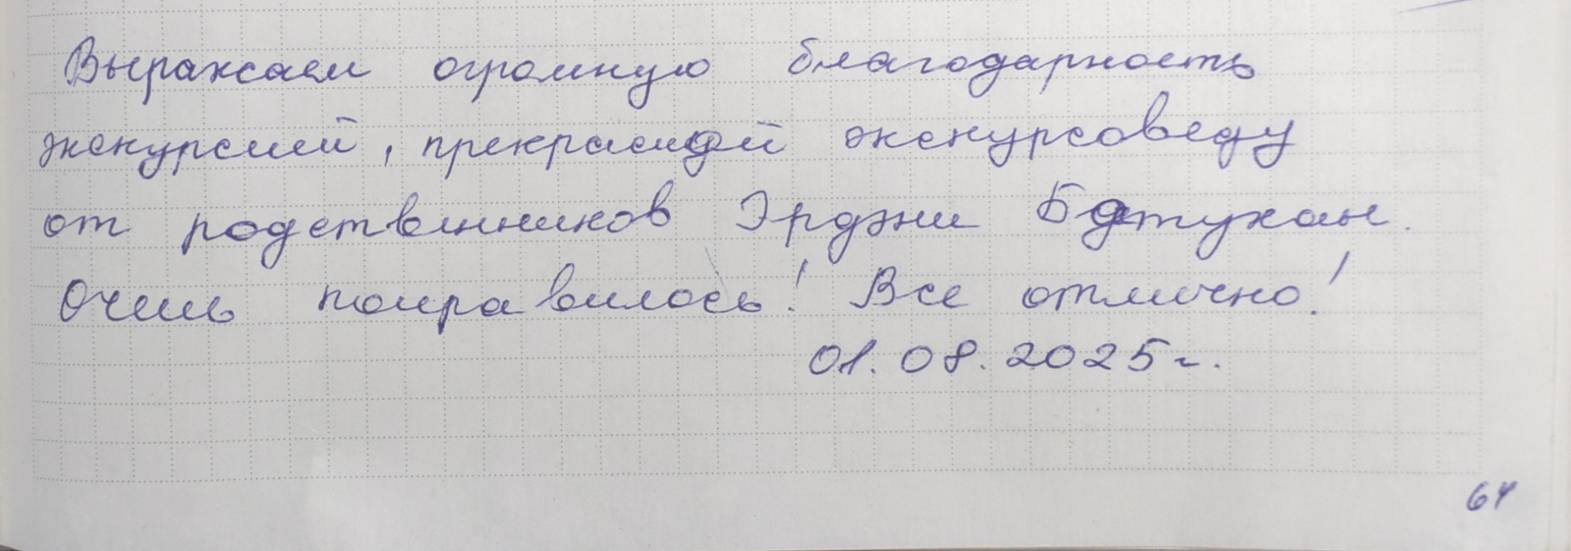 Выражаем огромную благодарность
экскурсией, прекрасной экскурсоведу
от родственников Эрдэни Батухан.
Очень понравилось! Все отлично!
01.08.2025г.
64